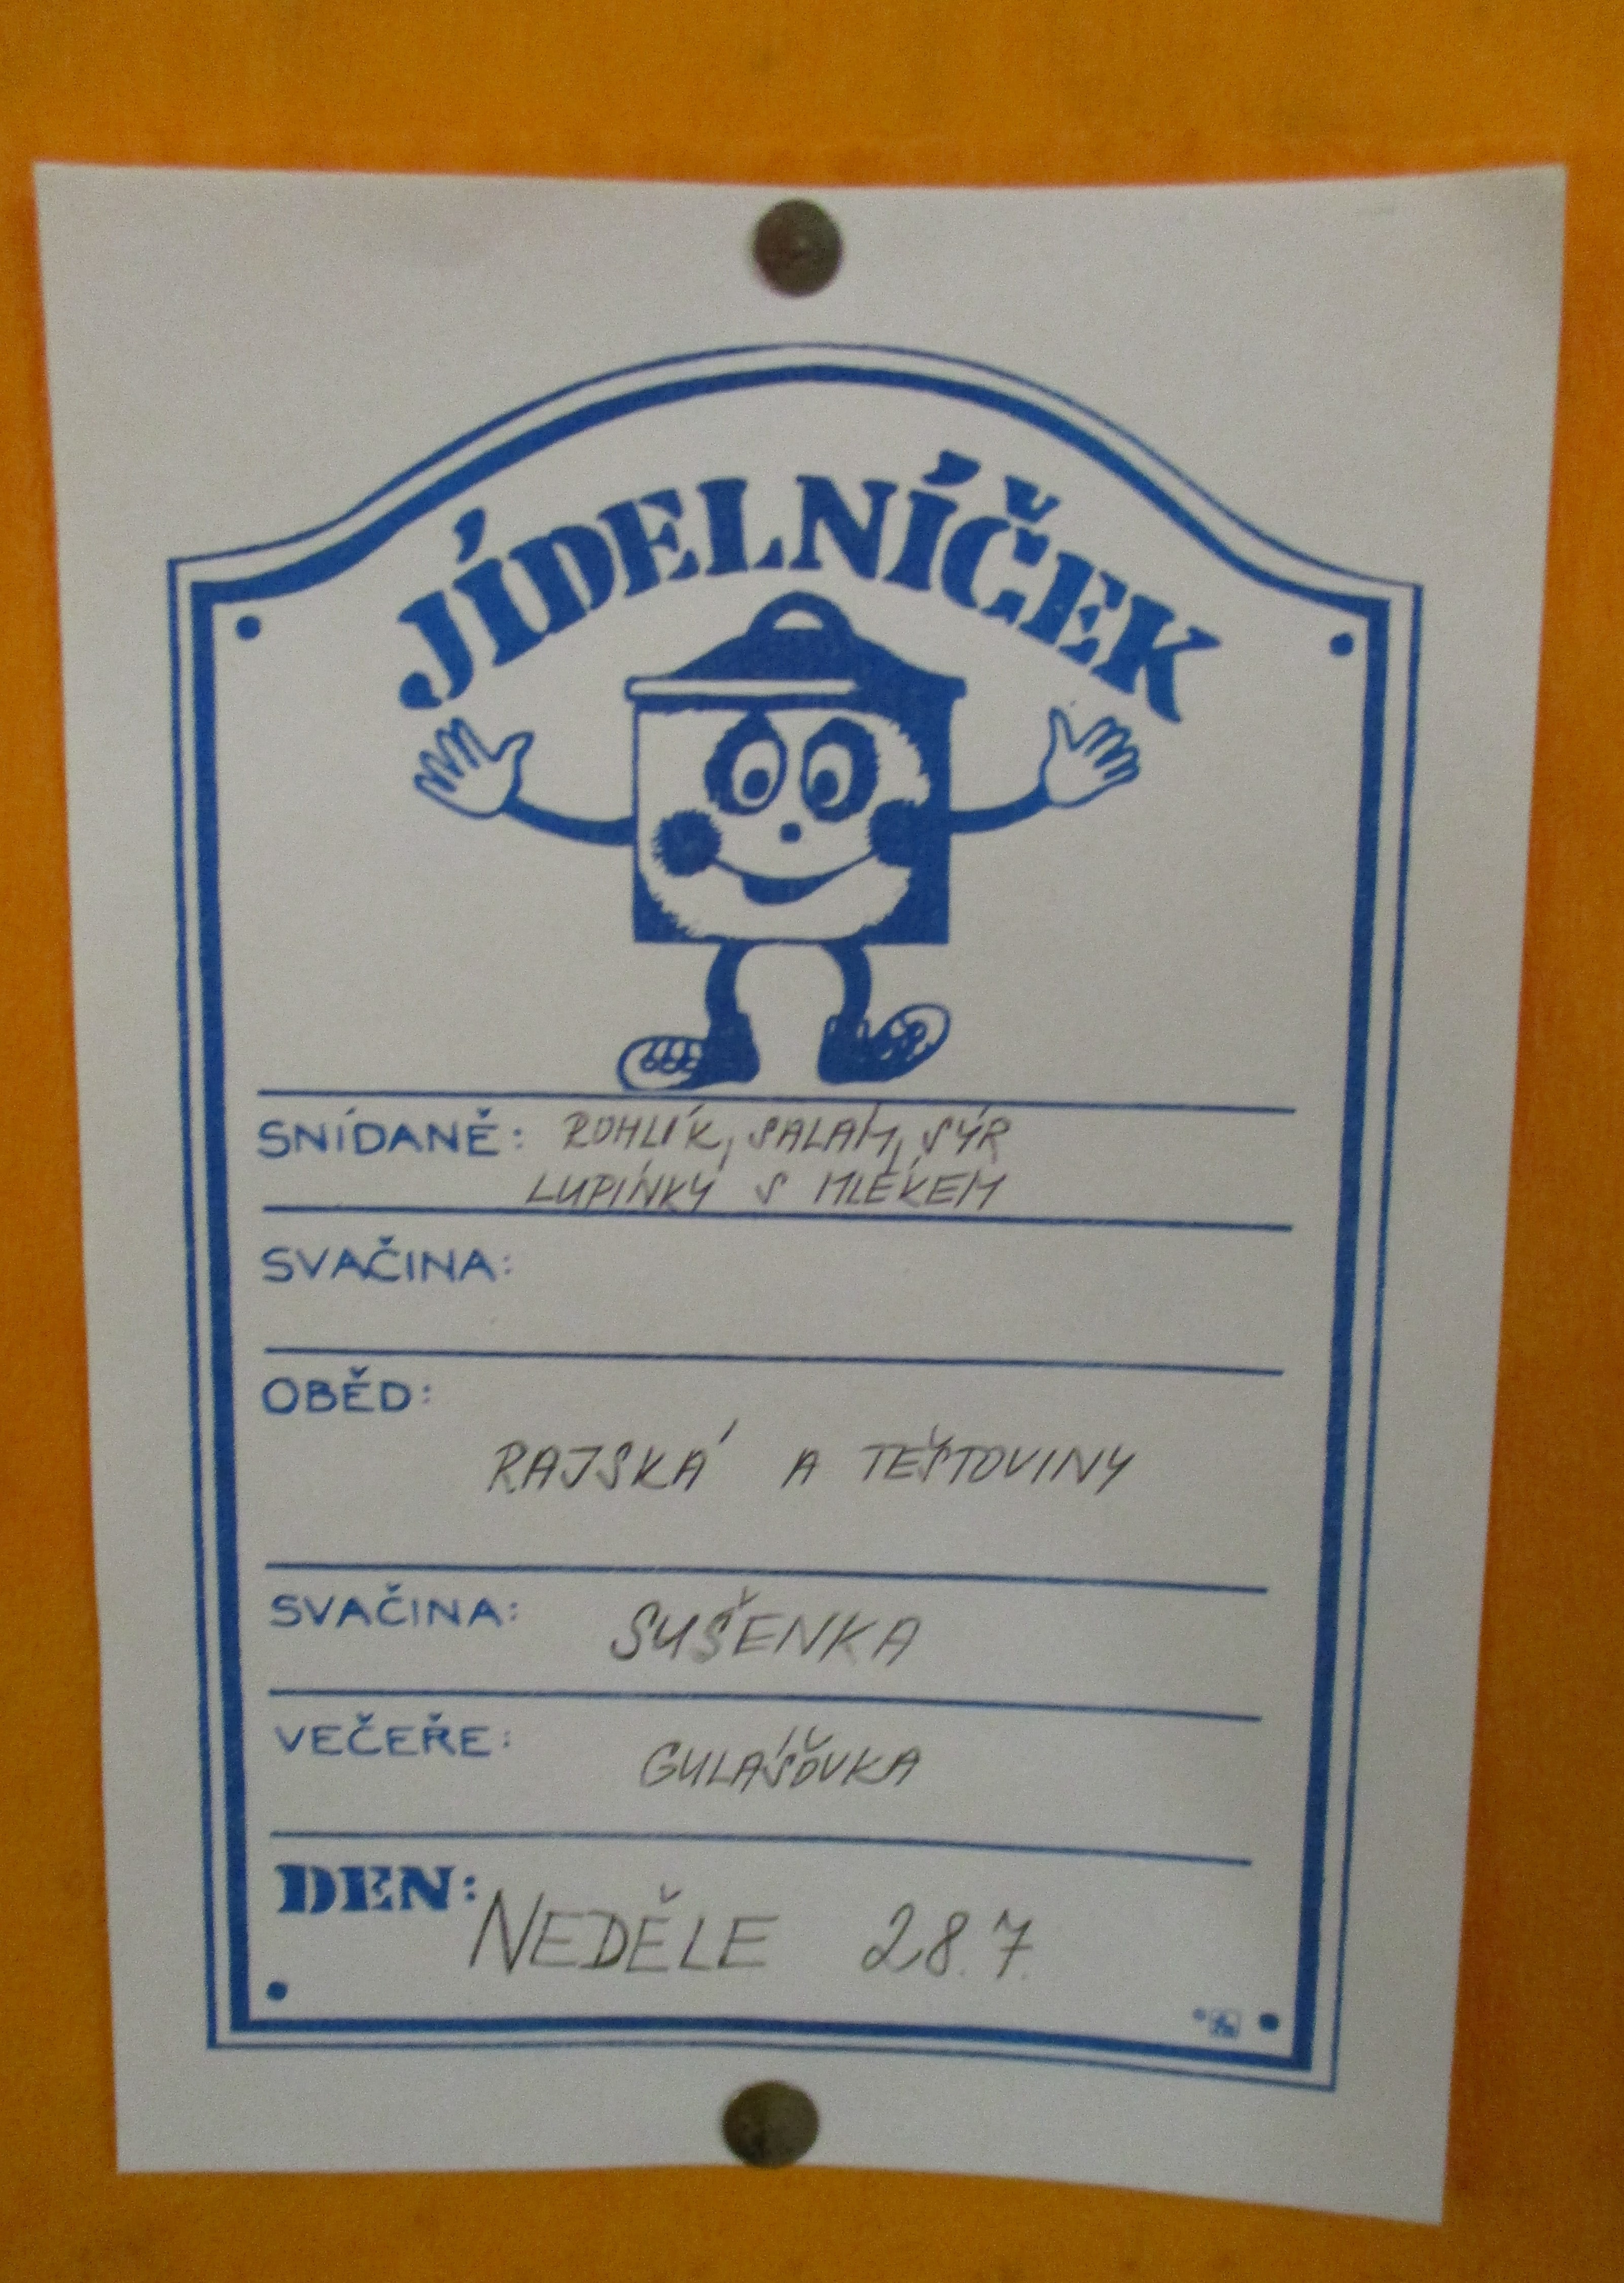 JÍDELNÍČEK
SNÍDANĚ: ROHLÍK, SALÁM, SÝR
LUPÍNKY S MLÉKEM
SVAČINA:
OBĚD:
RAJSKÁ A TĚSTOVINY
SVAČINA: SUŠENKA
VEČEŘE: GULÁŠOVKA
DEN: NEDĚLE 28.7.